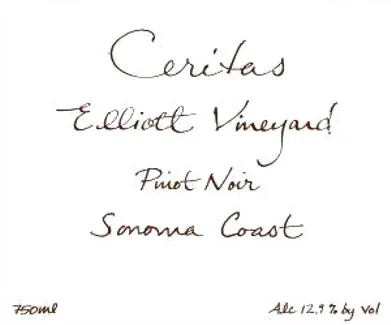 Ceritas
Elliott Vineyard
Pinot Noir
Sonoma Coast
750ml
Alc 12.9% by Vol